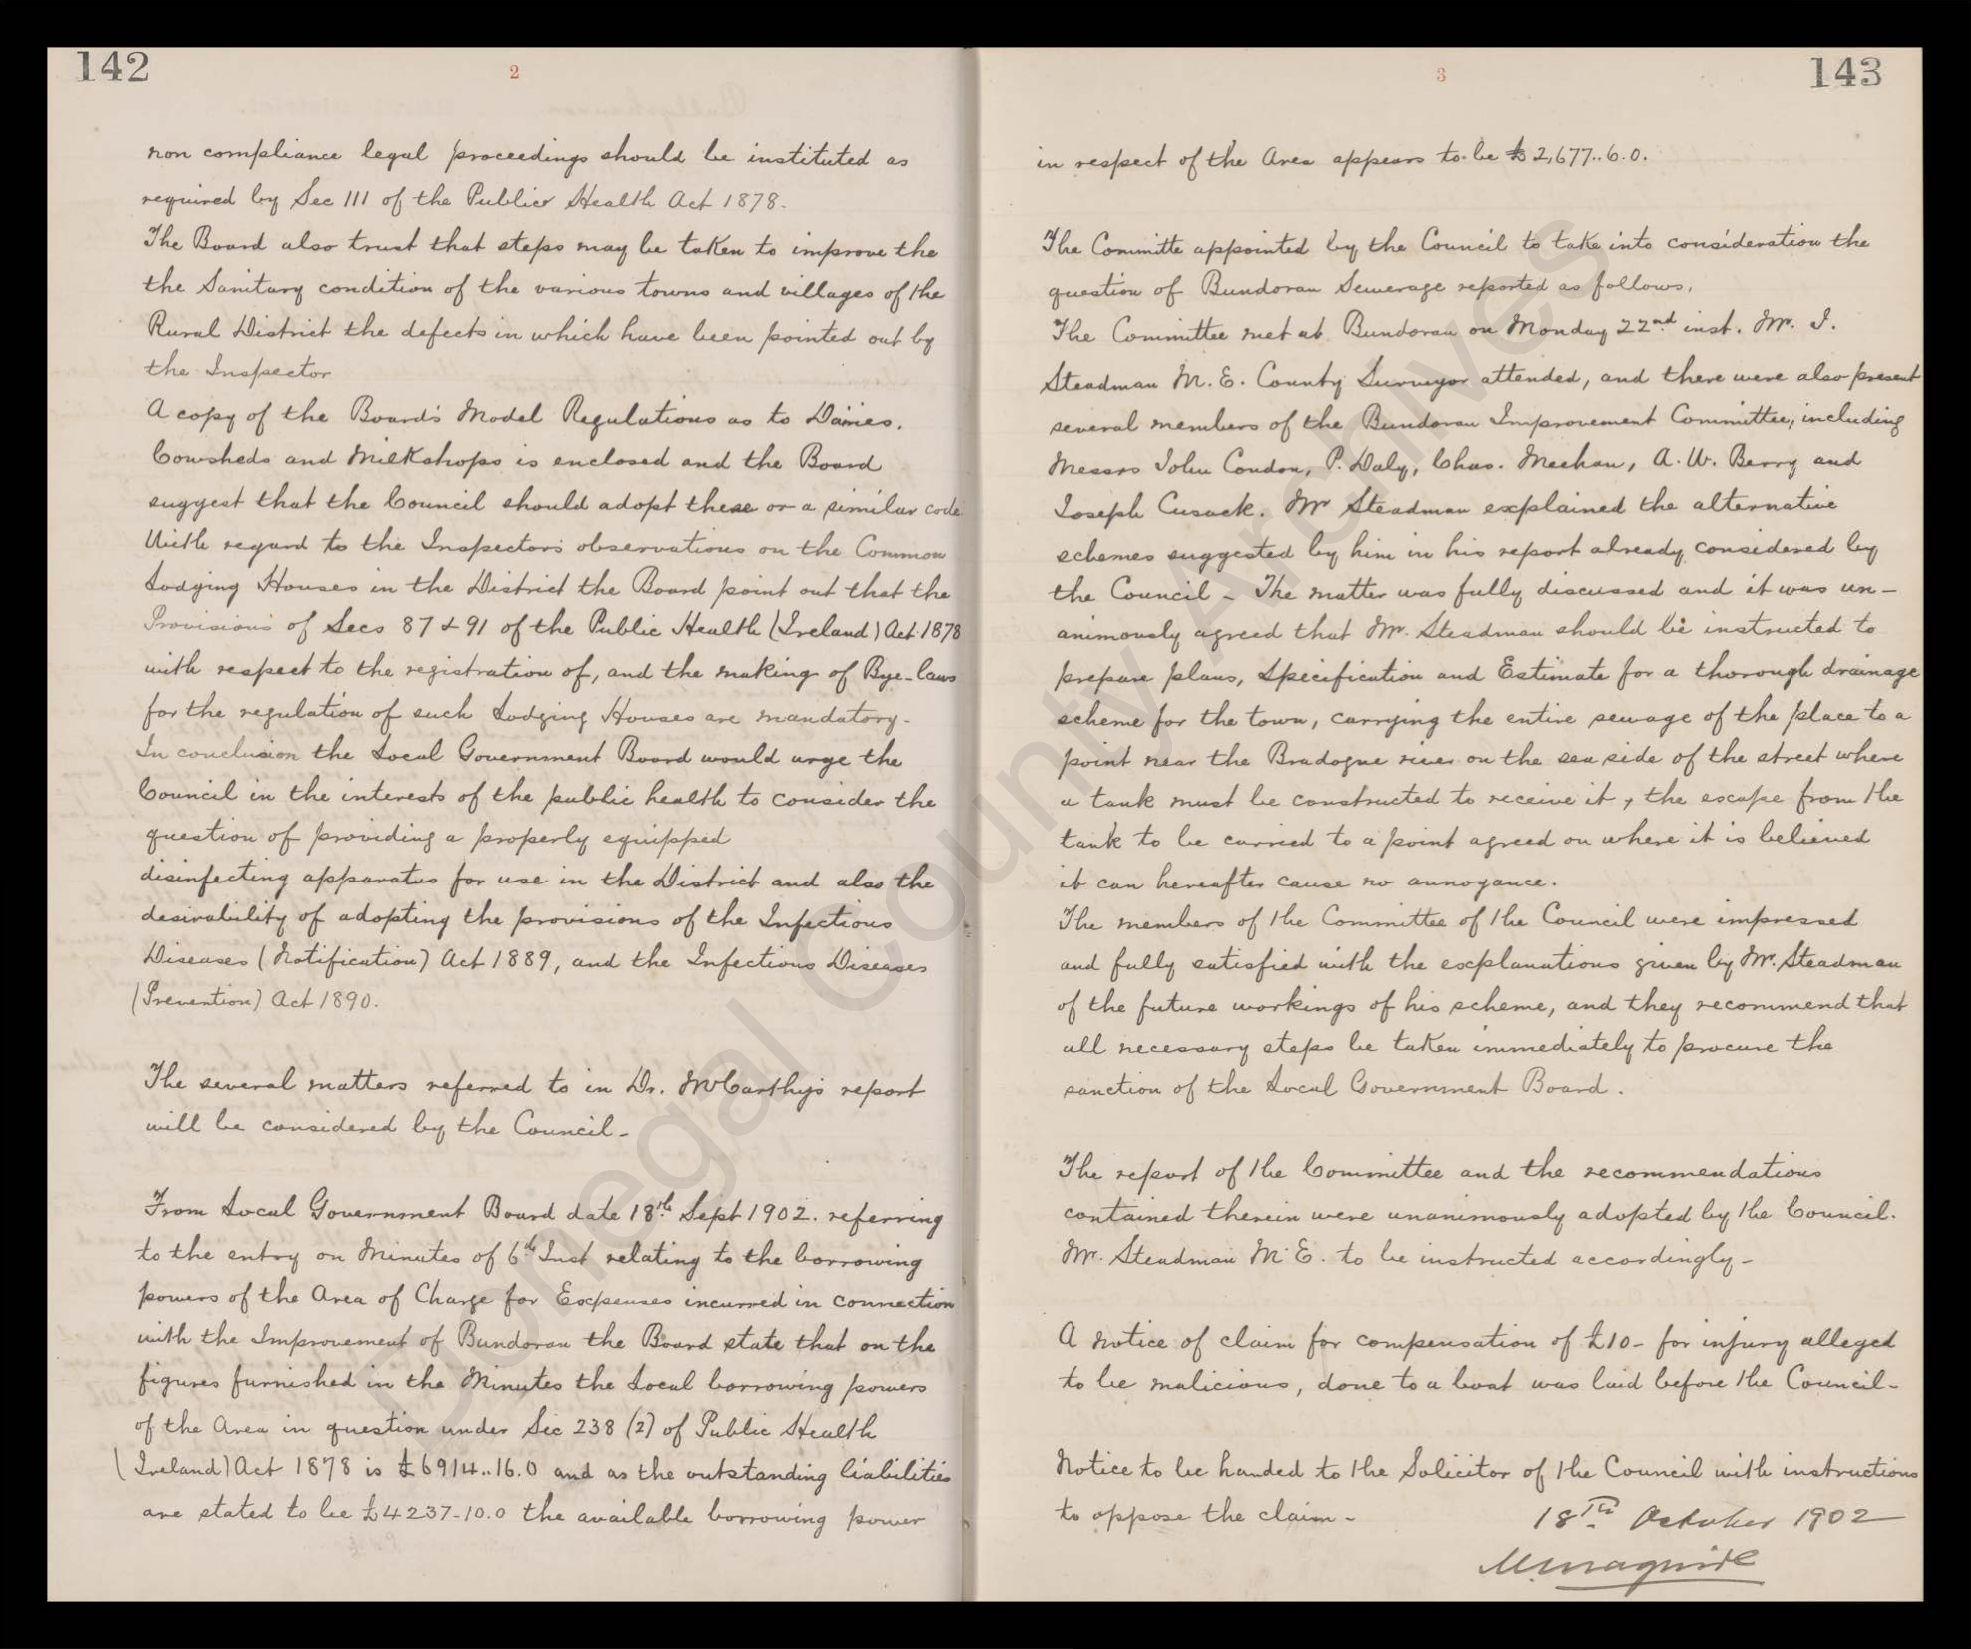 142
2
non compliance legal proceedings should be instituted as
required by Sec 111 of the Public Health Act 1878.
The Board also trust that steps may be taken to improve the
the Sanitary condition of the various towns and villages of the
Rural District the defects in which have been pointed out by
the Inspector
A copy of the Board's Model Regulations as to Dairies.
Cowsheds and Milkshops is enclosed and the Board
suggest that the Council should adopt these or a similar code
With regard to the Inspectors observations on the Common
Lodging Houses in the District the Board point out that the
Provisions of Secs 87 & 91 of the Public Health (Ireland) Act 1878
with respect to the registration of, and the making of Bye-laws
for the regulation of such Lodging Houses are mandatory.
In conclusion the Local Government Board would urge the
Council in the interests of the public health to consider the
question of providing a properly equipped
disinfecting apparatus for use in the District and also the
desirability of adopting the provisions of the Infectious
Diseases (Notification) Act 1889, and the Infectious Diseases
(Prevention) Act 1890.
The several matters referred to in Dr. McCarthy's report
will be considered by the Council -
From Local Government Board date 18th Sept 1902. referring
to the entry on Minutes of 6th Inst relating to the borrowing
powers of the Area of Charge for Expenses incurred in connection
with the Improvement of Bundoran the Board state that on the
figures furnished in the Minutes the Local borrowing powers
of the Area in question under Sec 238 (2) of Public Health
(Ireland) Act 1878 is £6914..16.0 and as the outstanding liabilities
are stated to be £4237-10.0 the available borrowing power
3
143
in respect of the Area appears to be £2,677..6.0.
The Committe appointed by the Council to take into consideration the
question of Bundoran Sewerage reported as follows.
The Committee met at Bundoran on Monday 22nd inst. Mr. J.
Steadman M.E. County Surveyor attended, and there were also present
several members of the Bundoran Improvement Committee, including
Messrs John Condon, P. Daly, Chas. Meehan, A. W. Berry and
Joseph Cusack. Mr Steadman explained the alternative
schemes suggested by him in his report already considered by
the Council - The matter was fully discussed and it was un-
animously agreed that Mr. Steadman should be instructed to
prepare plans, Specification and Estimate for a thorough drainage
scheme for the town, carrying the entire sewage of the place to a
point near the Bradogue river on the sea side of the street where
a tank must be constructed to receive it, the escape from the
tank to be carried to a point agreed on where it is believed
it can hereafter cause no annoyance.
The members of the Committee of the Council were impressed
and fully satisfied with the explanations given by Mr. Steadman
of the future workings of his scheme, and they recommend that
all necessary steps be taken immediately to procure the
sanction of the Local Government Board.
The report of the Committee and the recommendations
contained therein were unanimously adopted by the Council.
Mr. Steadman M.E. to be instructed accordingly -
A notice of claim for compensation of £10- for injury alleged
to be malicious, done to a boat was laid before the Council-
Notice to be handed to the Solicitor of the Council with instructions
to oppose the claim -
18th October 1902
M Maguire
Donegal County Archives